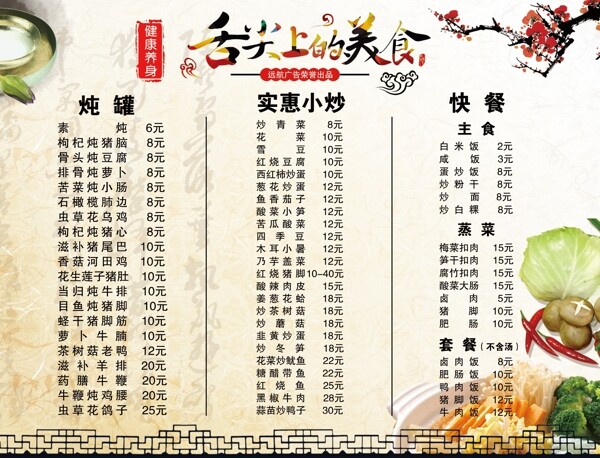 健康养身
舌尖上的美食
远航广告荣誉出品
炖罐
素炖 6元
枸杞炖猪脑 8元
骨头炖豆腐 8元
排骨炖萝卜 8元
苦菜炖小肠 8元
石橄榄肺边 8元
虫草花乌鸡 8元
枸杞炖猪心 8元
滋补猪尾巴 10元
香菇河田鸡 10元
花生莲子猪肚 10元
当归炖牛排 10元
目鱼炖猪脚 10元
蛏干猪脚筋 10元
萝卜牛腩 10元
茶树菇老鸭 12元
滋补羊排 20元
药膳牛鞭 20元
牛鞭炖鸡腰 20元
虫草花鸽子 25元
实惠小炒
炒青菜 8元
花菜 10元
雪豆 10元
红烧豆腐 10元
西红柿炒蛋 10元
葱花炒蛋 12元
鱼香茄子 12元
酸菜小笋 12元
苦瓜酸菜 12元
四季豆 12元
木耳小薯 12元
乃芋盖菜 12元
红烧猪脚 10-40元
酸辣肉皮 15元
姜葱花蛤 18元
炒茶树菇 18元
炒蘑菇 18元
韭黄炒蛋 18元
炒冬笋 18元
花菜炒鱿鱼 22元
糖醋带鱼 22元
红烧鱼 25元
黑椒牛肉 28元
蒜苗炒鸭子 30元
快餐
主食
白米饭 2元
咸饭 3元
蛋炒饭 8元
炒粉干 8元
炒面 8元
炒白粿 8元
蒸菜
梅菜扣肉 15元
笋干扣肉 15元
腐竹扣肉 15元
酸菜大肠 15元
卤肉 5元
猪脚 10元
肥肠 10元
套餐(不含汤)
卤肉饭 8元
肥肠饭 10元
鸭肉饭 10元
猪脚饭 12元
牛肉饭 12元